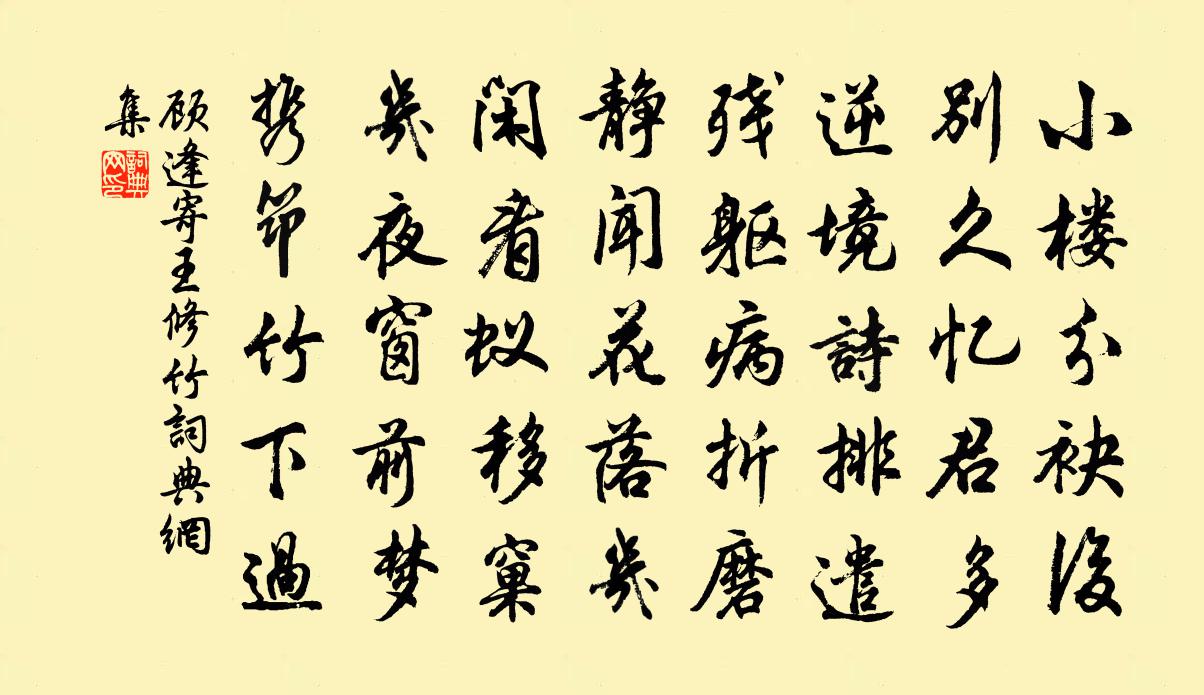 小楼分袂後
别久忆君多
逆境詩排遣
残躯病折磨
静闻花落幾
闲看蚁移窠
幾夜窗前梦
携筇竹下過
顾逢寄王修竹詞典網
集
詞典
网印